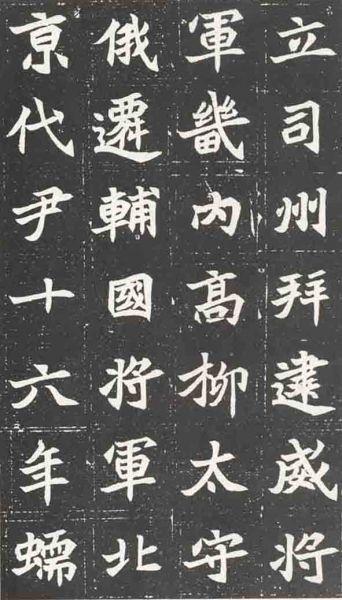 立司州拜建威将
軍畿内髙柳太守
俄遷輔國将軍北
京代尹十六年蠕